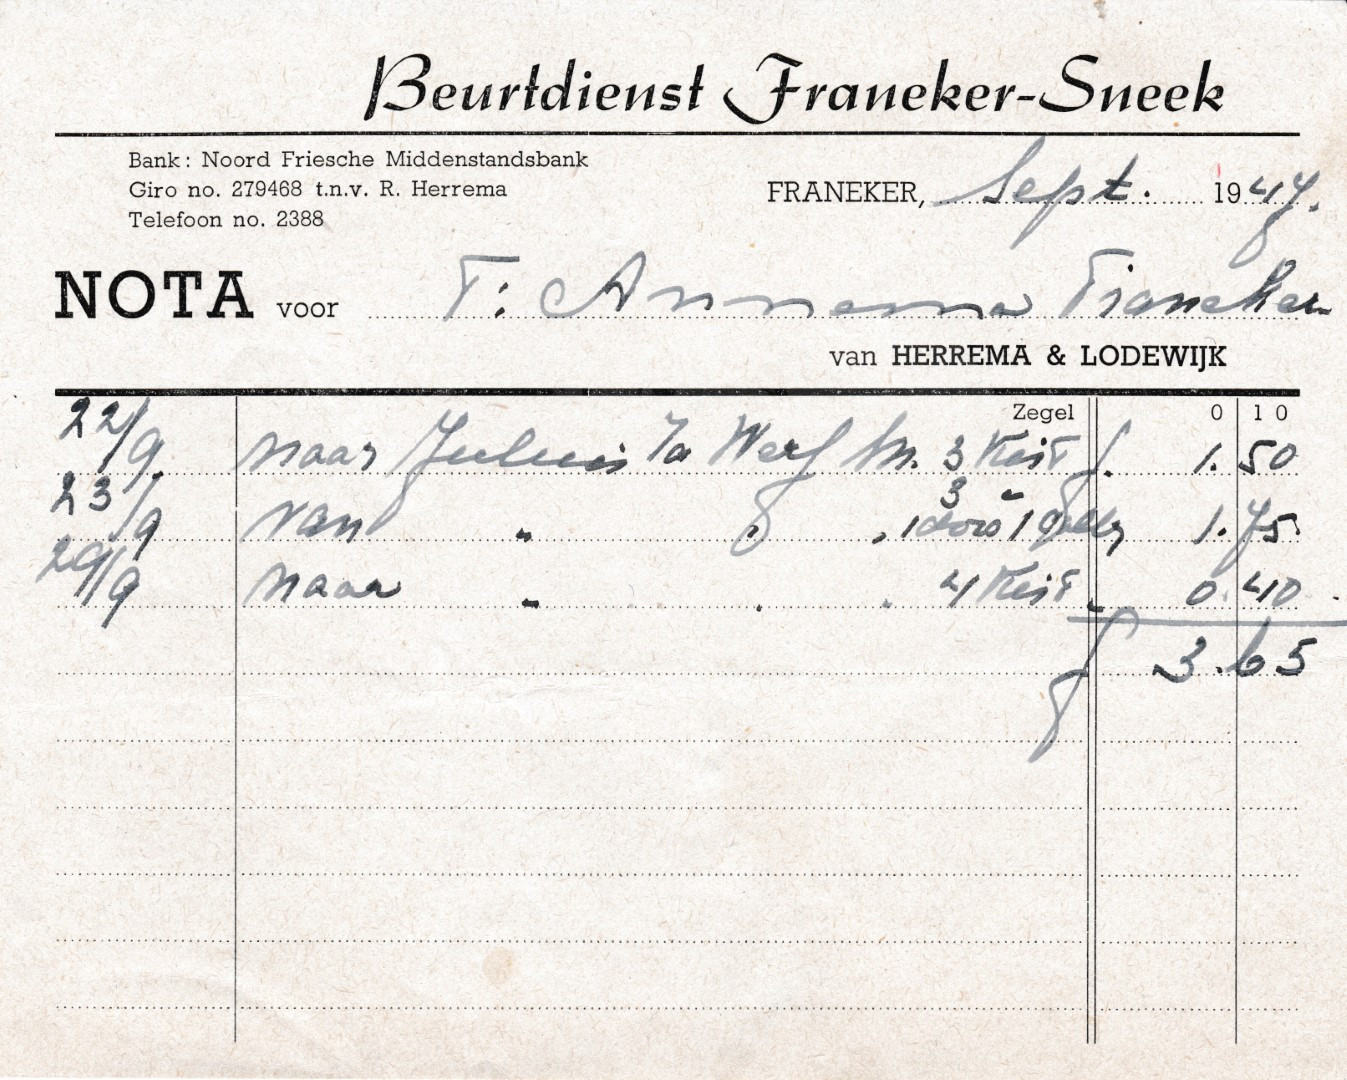 Beurtdienst Franeker-Sneek
Bank: Noord Friesche Middenstandsbank
Giro no. 279468 t.n.v. R. Herrema
Telefoon no. 2388
FRANEKER, Sept. 1947.
NOTA voor T: Annema Franeker
van HERREMA & LODEWIJK
Zegel 0 10
22/9. naar 3 Kist f. 1.50
23/9 van " " " 3 " 1 doos 1 1.75
29/9 naar " " " 4 Kist " 0.40
f 3.65